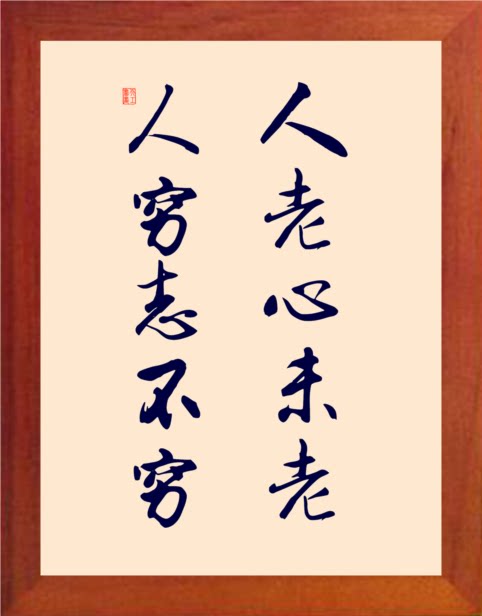 人老心未老
人穷志不穷